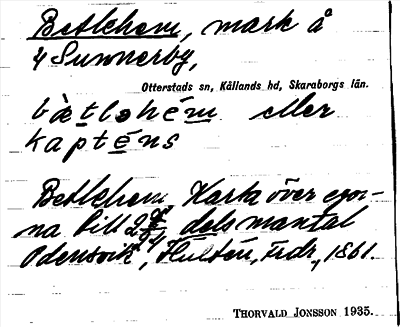 Betlehem, mark å
4 Sunnerby,
Otterstads sn, Kållands hd, Skaraborgs län.
bàetləhém eller
kapténs
Betlehem, Karta över egor-
na till dels mantal
Odensvik, Hultén, Fidr, 1861.
THORVALD JONSSON 1935.